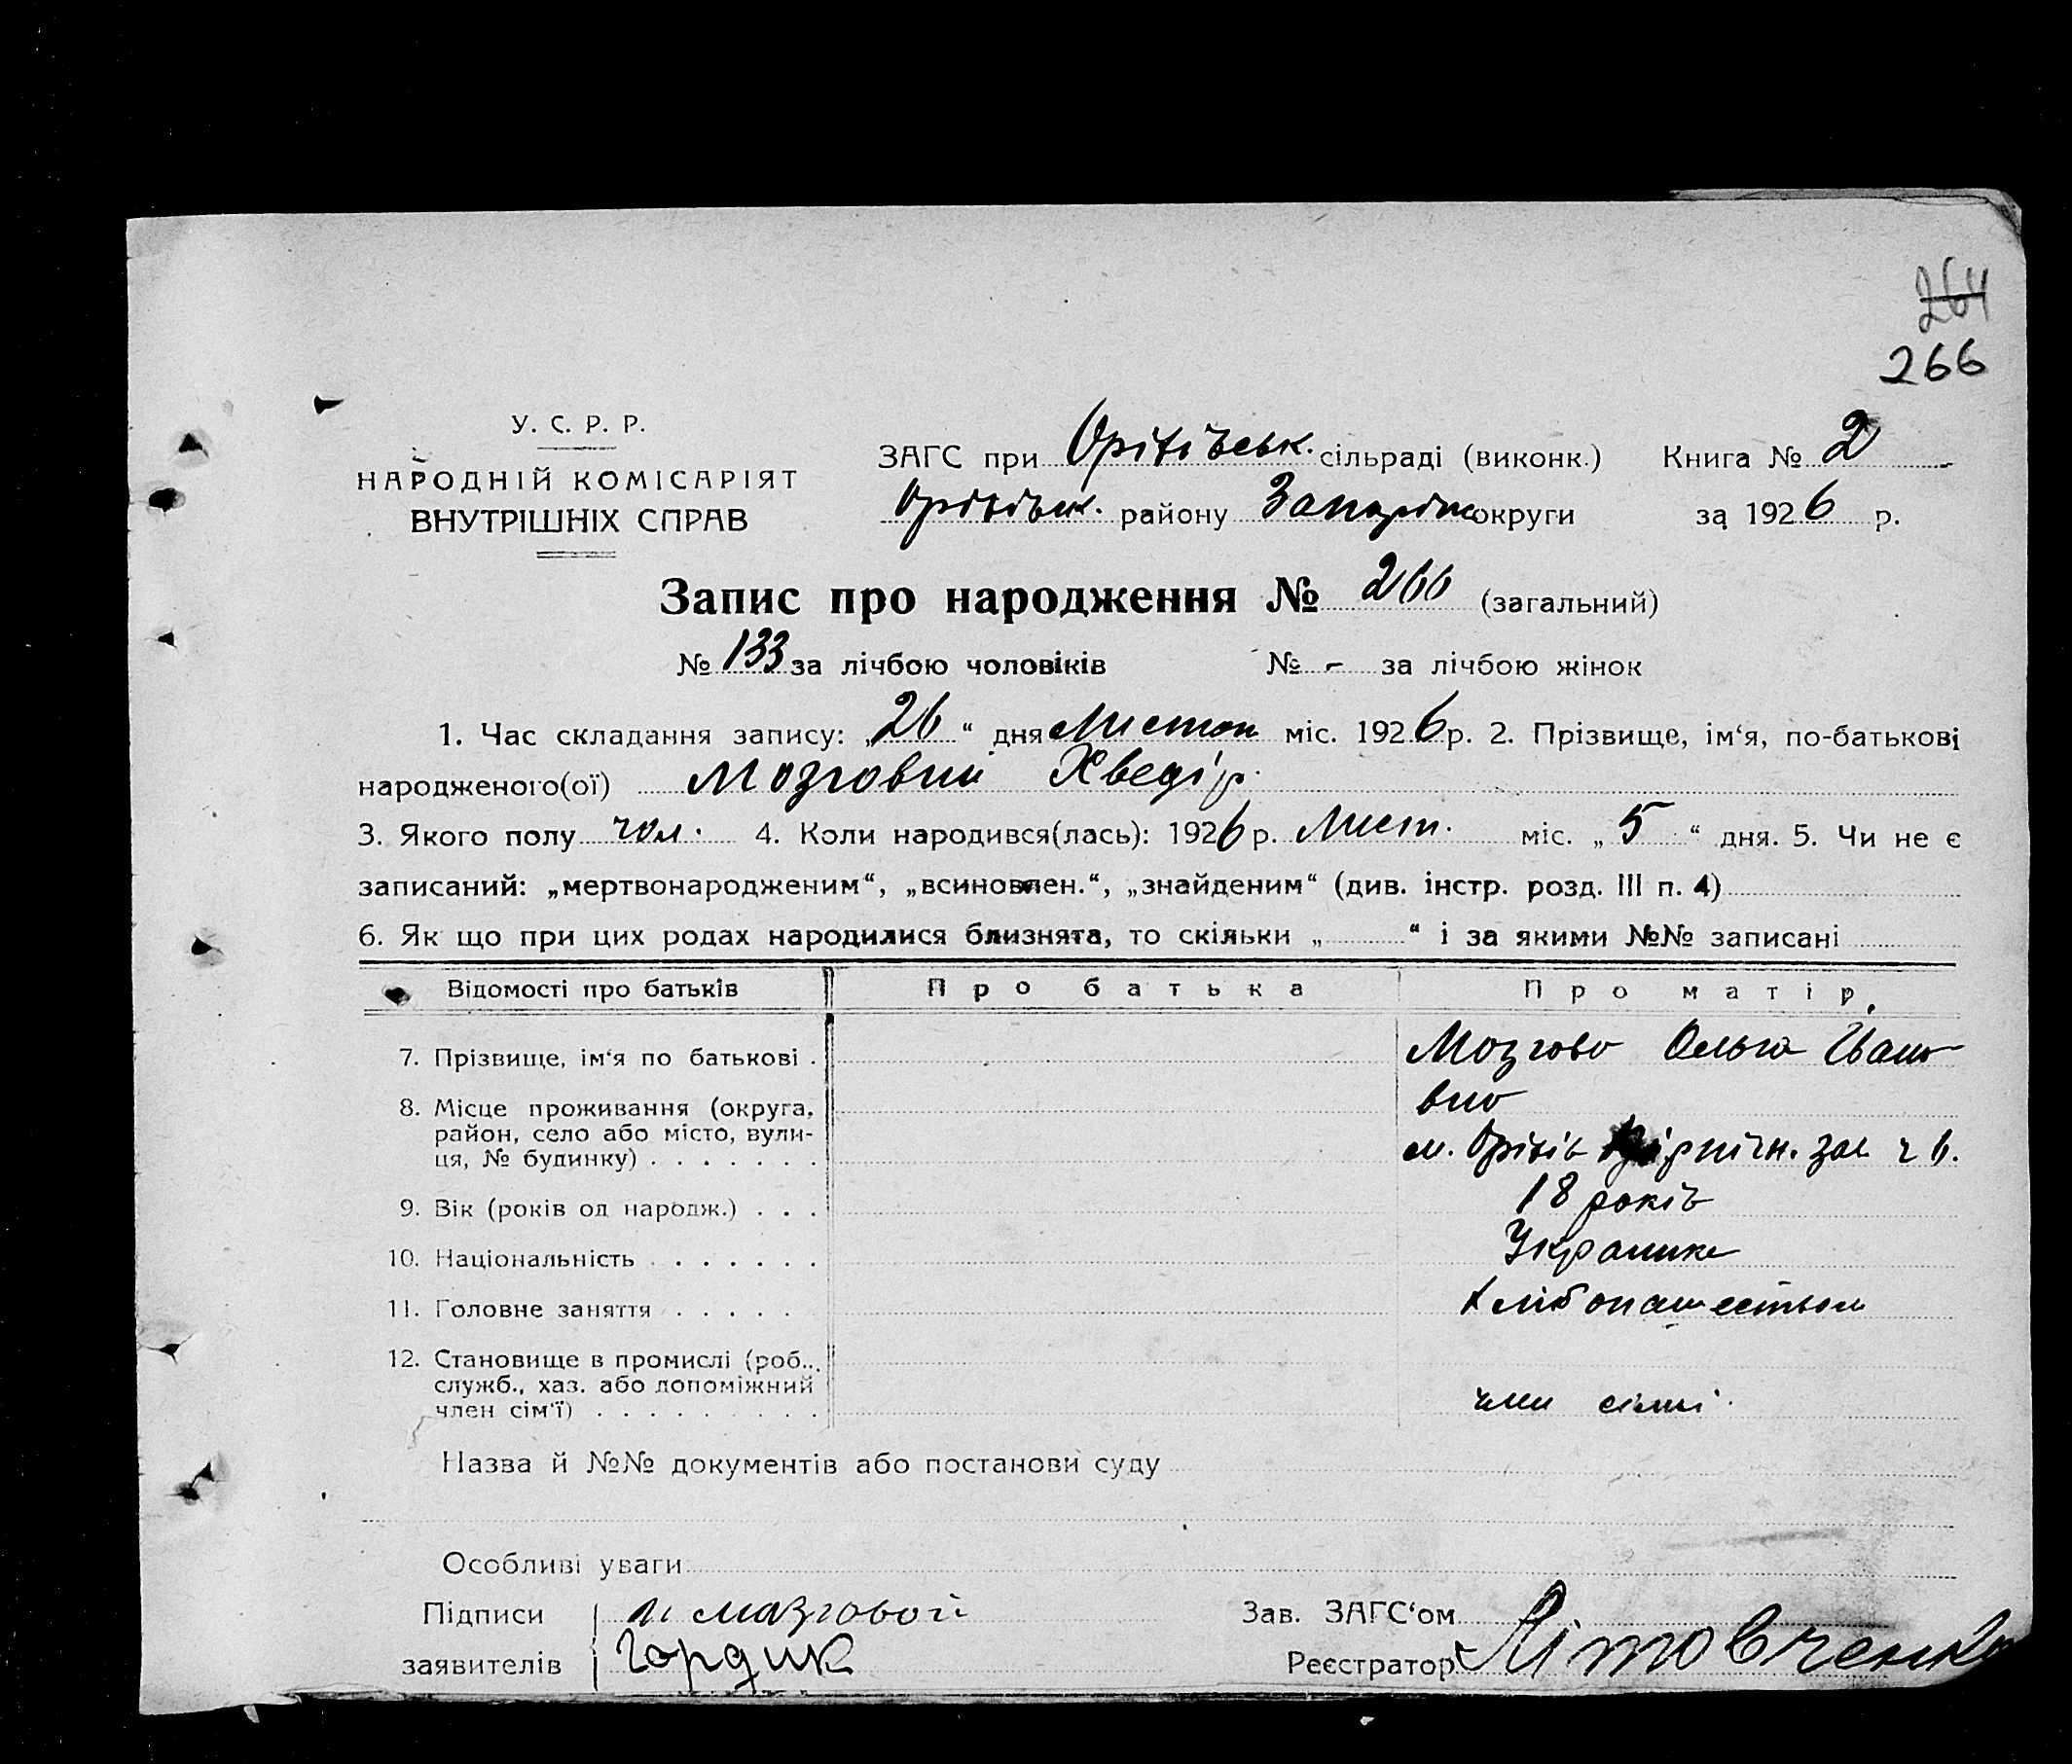 264
266
У. С. Р. Р.
НАРОДНІЙ КОМІСАРІЯТ
ВНУТРІШНІХ СПРАВ
ЗАГС при Оріхівськ. сільраді (виконк.) Книга № 2
Оріхівськ. району Запоріж округи за 1926 р.
Запис про народження № 266 (загальний)
№ 133 за лічбою чоловіків № - за лічбою жінок
1. Час складання запису: „26“ дня Листоп міс. 1926 р. 2. Прізвище, ім‘я, по-батькові
народженого(ої) Мозговий Хведір
3. Якого полу чол. 4. Коли народився(лась): 1926 р. Лист. міс. „5“ дня. 5. Чи не є
записаний: „мертвонародженим“, „всиновлен.“, „знайденим“ (див. інстр. розд. III п. 4)
6. Як що при цих родах народилися близнята, то скільки „ “ і за якими №№ записані
Відомості про батьків Про батька Про матір
7. Прізвище, ім‘я по батькові . Мозгова Ольга Івано
вна
8. Місце проживання (округа,
район, село або місто, вули-
ця, № будинку) . . . . . . . м. Оріхів
9. Вік (років од народж.) . . . 18 років
10. Національність . . . . . . . Українка
11. Головне заняття . . . . . хлібопашеством
12. Становище в промислі (роб..,
служб., хаз. або допоміжний
член сім‘ї) . . . . . . . . . член сімї
Назва й №№ документів або постанови суду
Особливі уваги
Підписи мазговой Зав. ЗАГС‘ом
заявителів Гордик Реєстратор Літовченко